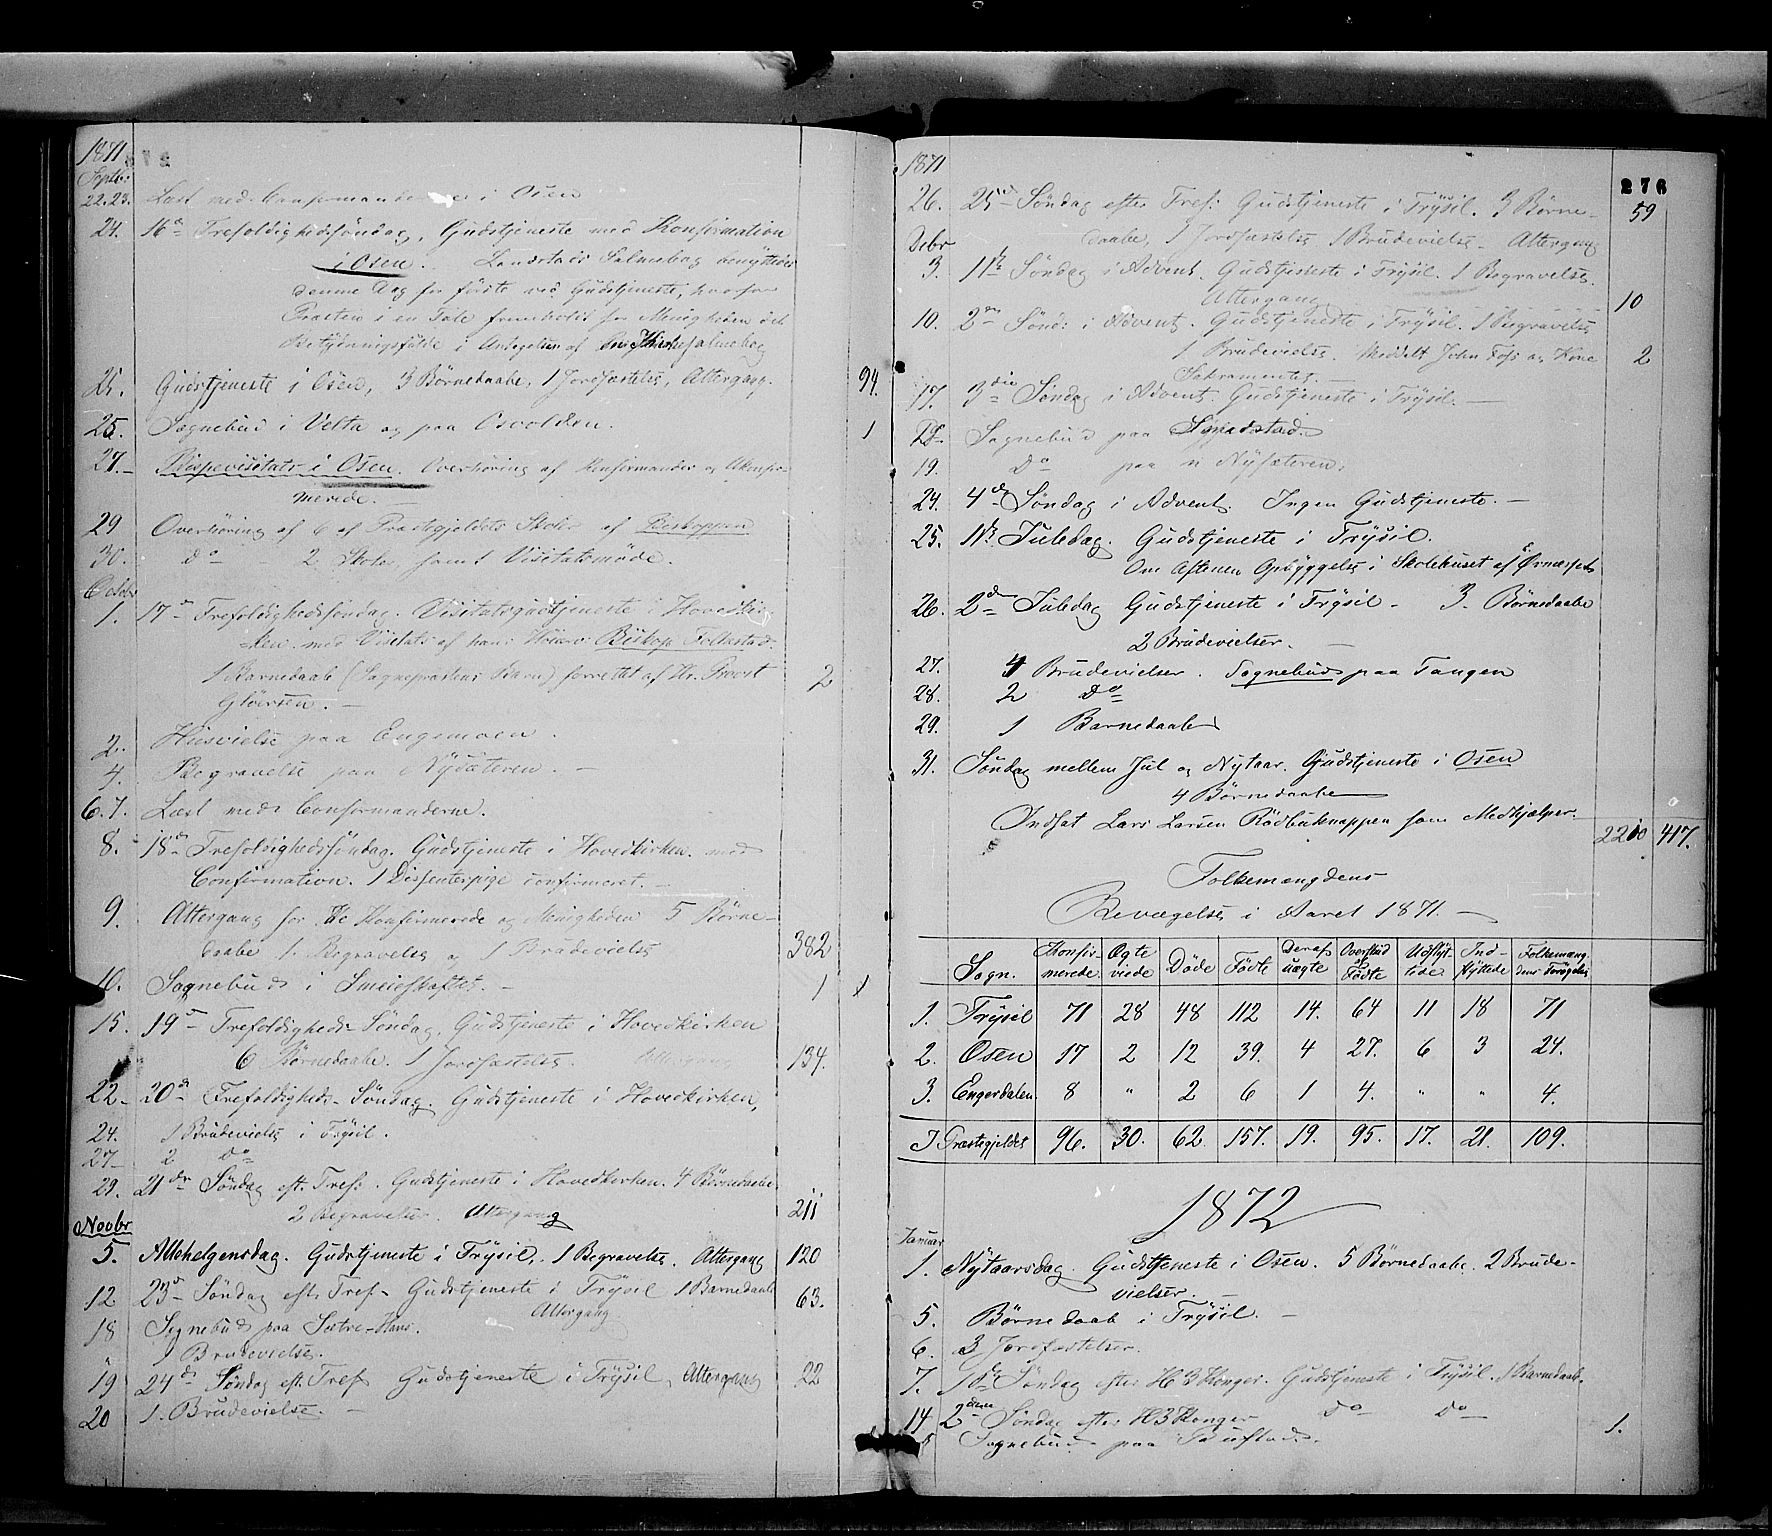 1871
Septbr
22.23. Læst med Confirmanderne i Osen
24. 16de Trefoldighedssöndag, Gudstjeneste med Konfirmation
i Osen. Landstads Salmebog benyttedes
denne Dag for förste ved Gudstjeneste, hvorfor
Præsten i en Tale fremholdt for Menigheden det
Betydningsfulde i Antagelsen af Kirkesalmebog
25. Gudstjeneste i Osen, 3 Börnedaabe, 1 Jordfæstelse, Altergang. 94.
25. Sognebud i Velta og paa Osvolden. 1
27. Bispevisitats i Osen. Overhöring af Konfirmander og Ukonfir-
merede.
29 Overhöring af 6 af Præstegjeldets Skoler af Biskoppen
30. do 2 Skoler samt Visitatsmöde.
Octobr
1. 17de Trefoldighedssöndag. Visitatsgudstjeneste i Hovedkir-
ken med Visitats af hans Höiærv. Biskop Folkestad.
1 Barnedaab (Sognepræstens Barn) forrettet af Hr. Provst 2
Glöersen.
2. Husvielse paa Engemoen.
4. Begravelse paa Nysæteren.
6.7. Læst med Confirmanderne.
8. 18de Trefoldighedssöndag. Gudstjeneste i Hovedkirken med
Confirmation. 1 Dissenterpige confirmeret.
9. Altergang for de Konfirmerede og Menigheden 5 Börne-
daabe 1 Begravelse og 1 Brudevielse 382
10. Sognebud i 1
15. 19de Trefoldigheds-Söndag. Gudstjeneste i Hovedkirken
6 Börnedaabe. 1 Jordfæstelse. Altergang 134.
22 20de Trefoldigheds-Söndag. Gudstjeneste i Hovedkirken,
24. 1 Brudevielse i Trysil.
27 2 do
29. 21de Söndag eft. Tref. Gudstjeneste i Hovedkirken. 4 Börnedaabe
2 Begravelser. Altergang 211
Novbr
5. Allehelgensdag. Gudstjeneste i Trysil. 1 Begravelse. Altergang 120
12 23de Söndag efter Tref. Gudstjeneste i Trysil 1 Barnedaab 63.
Altergang.
18 Sognebud paa Sætre-Hans.
" 1 Brudevielse.
19 24de Söndag eft. Tref Gudstjeneste i Trysil, Altergang 22
20 1. Brudevielse.
1871
276
26. 25de Söndag efter Tref. Gudstjeneste i Trysil. 3 Börne- 59
daabe, 1 Jordfæstelse, 1 Brudevielse. Altergang
Debr
3. 1ste Söndag i Advent. Gudstjeneste i Trysil. 1 Begravelse.
Altergang 10
10. 2den Sönd: i Advent. Gudstjeneste i Trysil. 1 Begravelse
1 Brudevielse. Meddelt John Foss og Kone 2
Sakramentet.
17. 3die Söndag i Advent. Gudstjeneste i Trysil.
Sognebud paa
19. do paa n Nysæteren.
24. 4de Söndag i Advent. Ingen Gudstjeneste.
25. 1ste Juledag. Gudstjeneste i Trysil.
Om Aftenen Opbyggelse i Skolehuset af
26. 2den Juledag Gudstjeneste i Trysil. 3 Börnedaabe
2 Brudevielser.
27. 4 Brudevielser. Sognebud paa Tangen
28. 2 do
29. 1 Barnedaab
31. Söndag mellem Jul og Nytaar. Gudstjeneste i Osen
4 Börnedaabe
Indsat Lars Larsen Rödbuknappen som Medhjælper.
417.
Folkemængdens
Bevægelse i Aaret 1871.
Sogn. Konfir-merede Ægte viede Döde Födte Deraf uægte Overskud af Födte Udflyt-tede Ind-flyttede Folkemæng-dens Forögelse
1. Trysil 71 28 48 112 14. 64 11 18 71
2. Osen 17 2 12 39. 4 27. 6 3 24.
3. Engerdalen 8 " 2 6 1 4. " " 4.
I Præstegjeldet 96. 30. 62. 157. 19. 95. 17. 21. 109.
1872
Januar
1. Nytaarsdag. Gudstjeneste i Osen. 5 Börnedaabe. 2 Brude-
vielser.
5. Börnedaab i Trysil.
6. 3 Jordfæstelser.
7. 1ste Söndag efter H 3 Konger. Gudstjeneste i Trysil. 1 Barnedaab.
14 2den Söndag efter H 3 Konger do do
Sognebud paa 1.